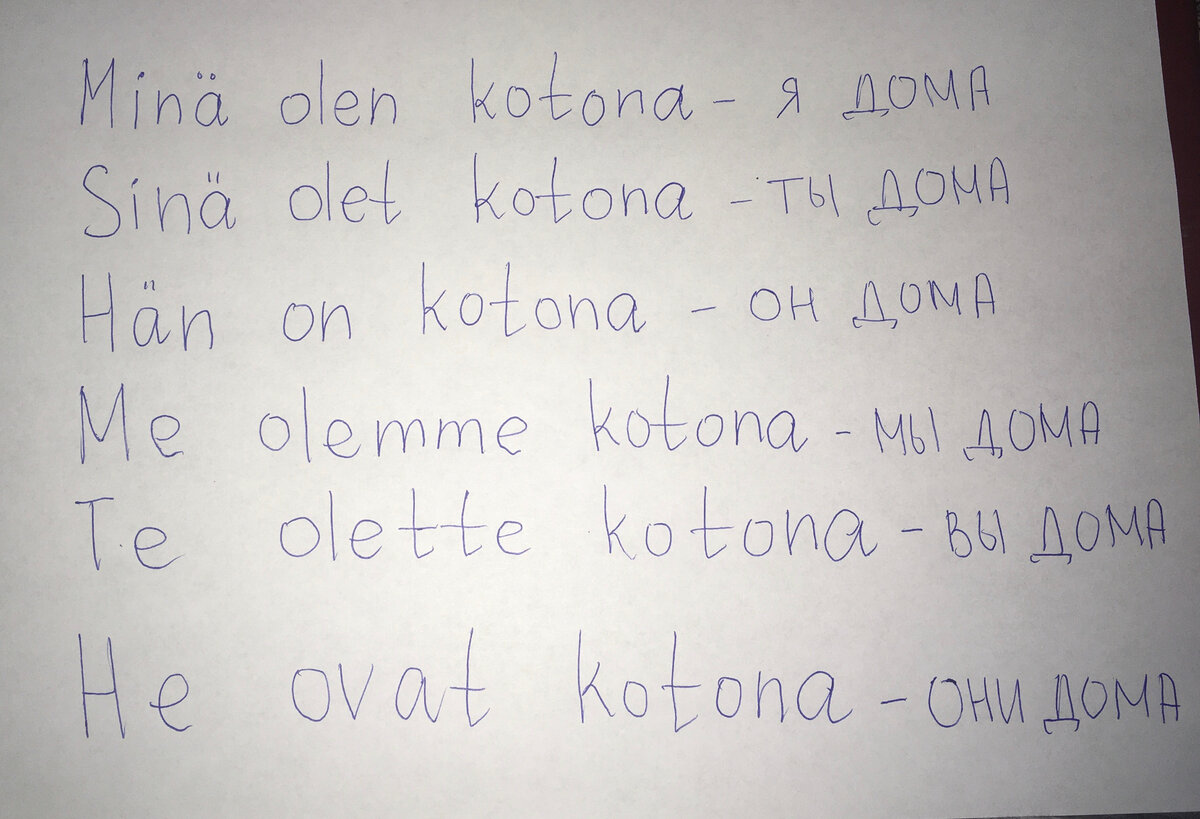 Minä olen kotona - я дома
Sinä olet kotona - ты дома
Hän on kotona - он дома
Me olemme kotona - мы дома
Te olette kotona - вы дома
He ovat kotona - они дома